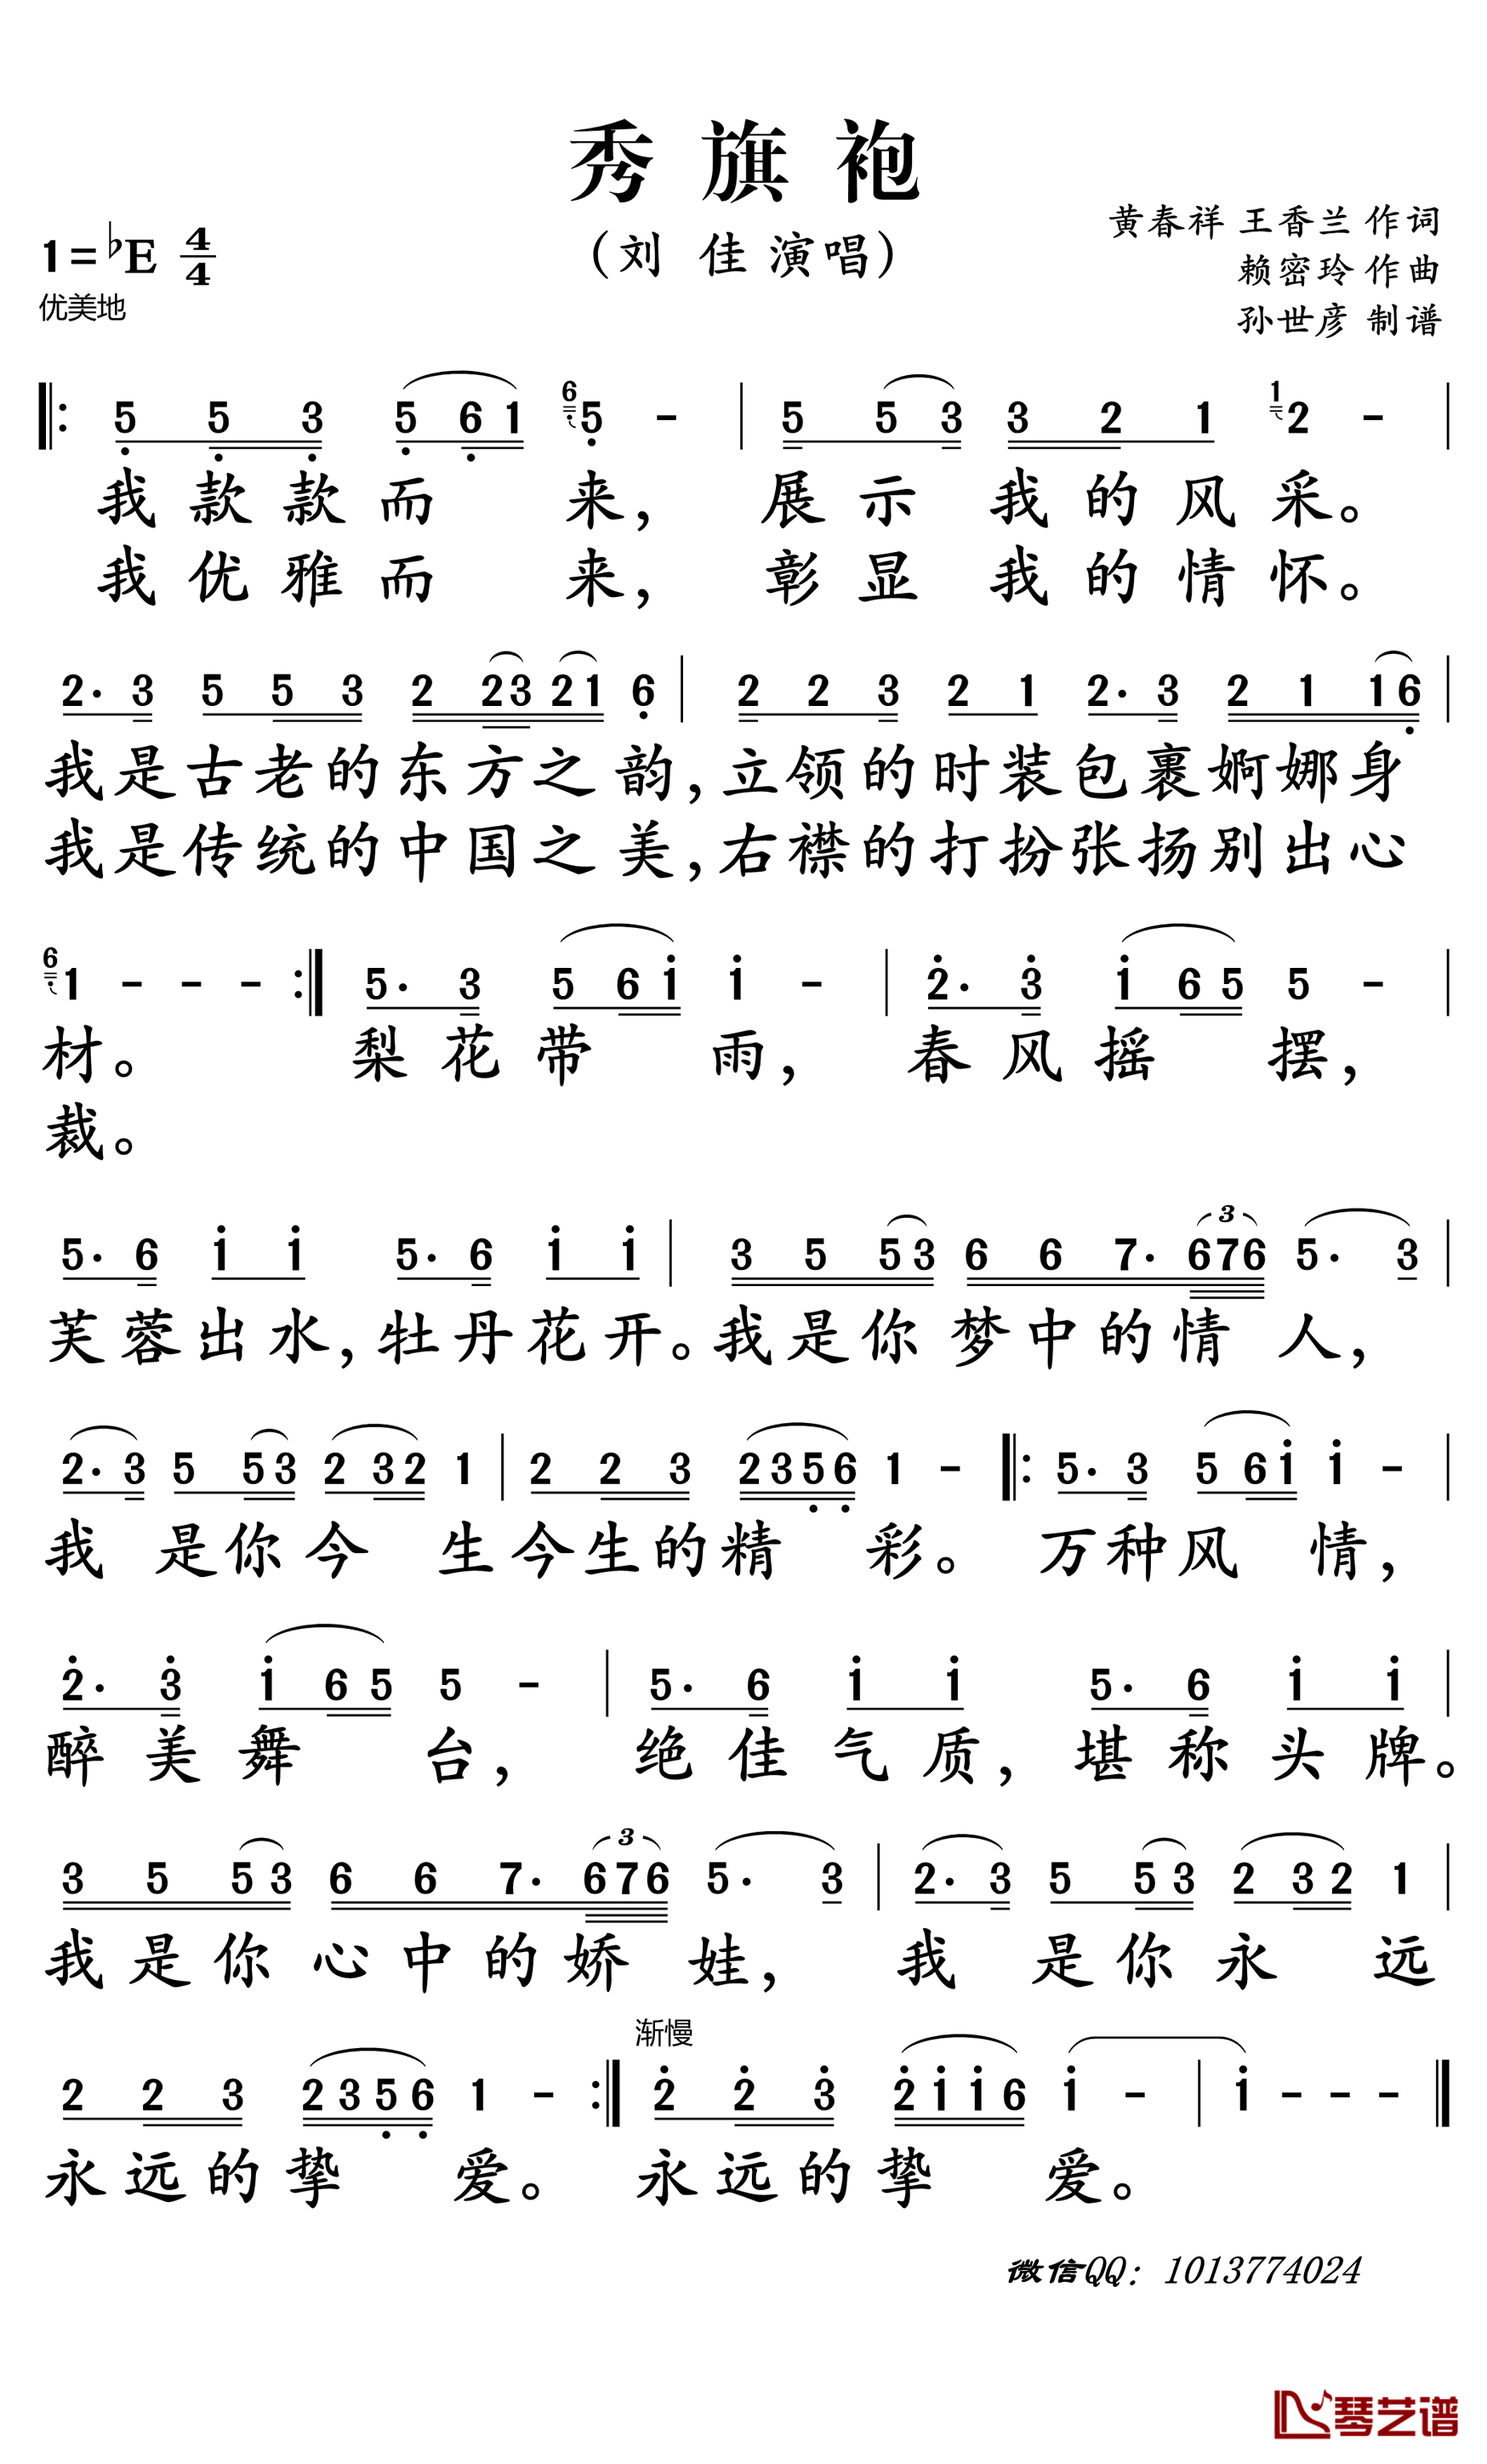 秀旗袍
(刘 佳 演唱)
黄春祥 王香兰 作词
赖密玲 作曲
孙世彦 制谱
1=♭E 4/4
优美地
5 5 3 5 6 1 6 5 - | 5 5 3 3 2 1 1 2 - |
我款款而 来, 展示 我的风采。
我优雅而 来, 彰显 我的情怀。
2· 3 5 5 3 2 2 3 2 1 6 | 2 2 3 2 1 2· 3 2 1 1 6 |
我是古老的东方之韵,立领的时装包裹婀娜身
我是传统的中国之美,右襟的打扮张扬别出心
6 1 - - - :| 5· 3 5 6 1 1 - | 2· 3 1 6 5 5 - |
材。 梨花带 雨, 春风摇 摆,
裁。
5· 6 1 1 5· 6 1 1 | 3 5 5 3 6 6 7· 6 7 6 5· 3 |
3
芙蓉出水,牡丹花开。我是你梦中的情 人,
2· 3 5 5 3 2 3 2 1 | 2 2 3 2 3 5 6 1 - |: 5· 3 5 6 1 1 - |
我 是你今 生今生的精 彩。 万种风 情,
2· 3 1 6 5 5 - | 5· 6 1 1 5· 6 1 1 |
醉美舞 台, 绝佳气质, 堪称头牌。
3 5 5 3 6 6 7· 6 7 6 5· 3 | 2· 3 5 5 3 2 3 2 1 |
3
我是你心中的娇 娃, 我 是你永 远
渐慢
2 2 3 2 3 5 6 1 - :| 2 2 3 2 1 1 6 1 - | 1 - - - ‖
永远的挚 爱。 永远的挚 爱。
微信QQ: 1013774024
琴艺谱